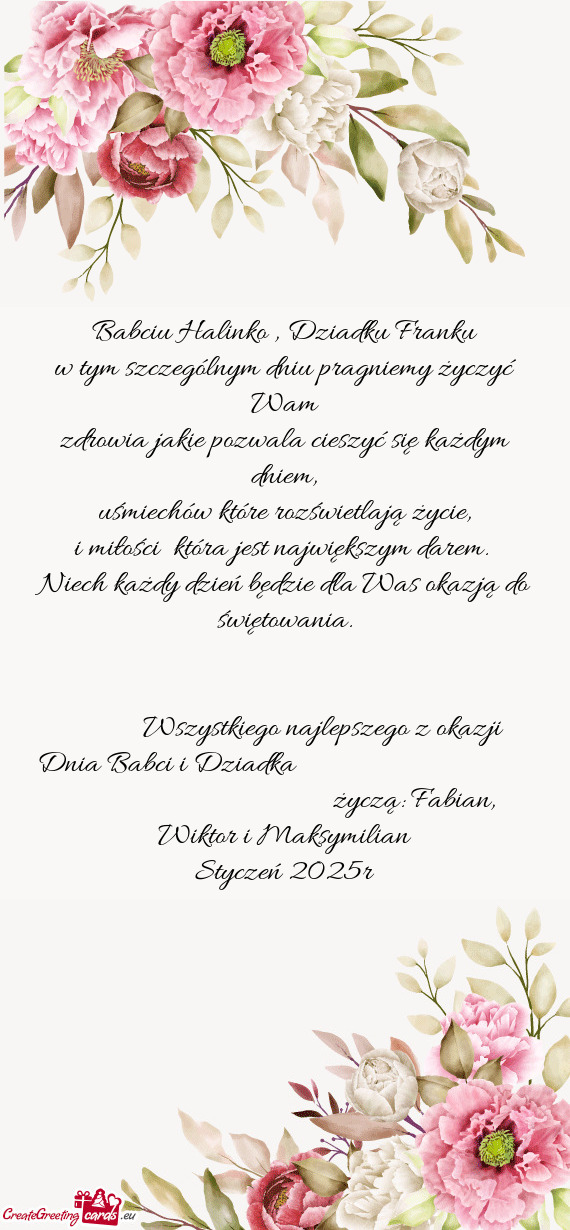 Babciu Halinko , Dziadku Franku
w tym szczególnym dniu pragniemy życzyć
Wam
zdrowia jakie pozwala cieszyć się każdym
dniem,
uśmiechów które rozświetlają życie,
i miłości  która jest największym darem.
Niech każdy dzień będzie dla Was okazją do
świętowania.
Wszystkiego najlepszego z okazji
Dnia Babci i Dziadka
życzą: Fabian,
Wiktor i Maksymilian
Styczeń 2025r
CreateGreeting cards .eu